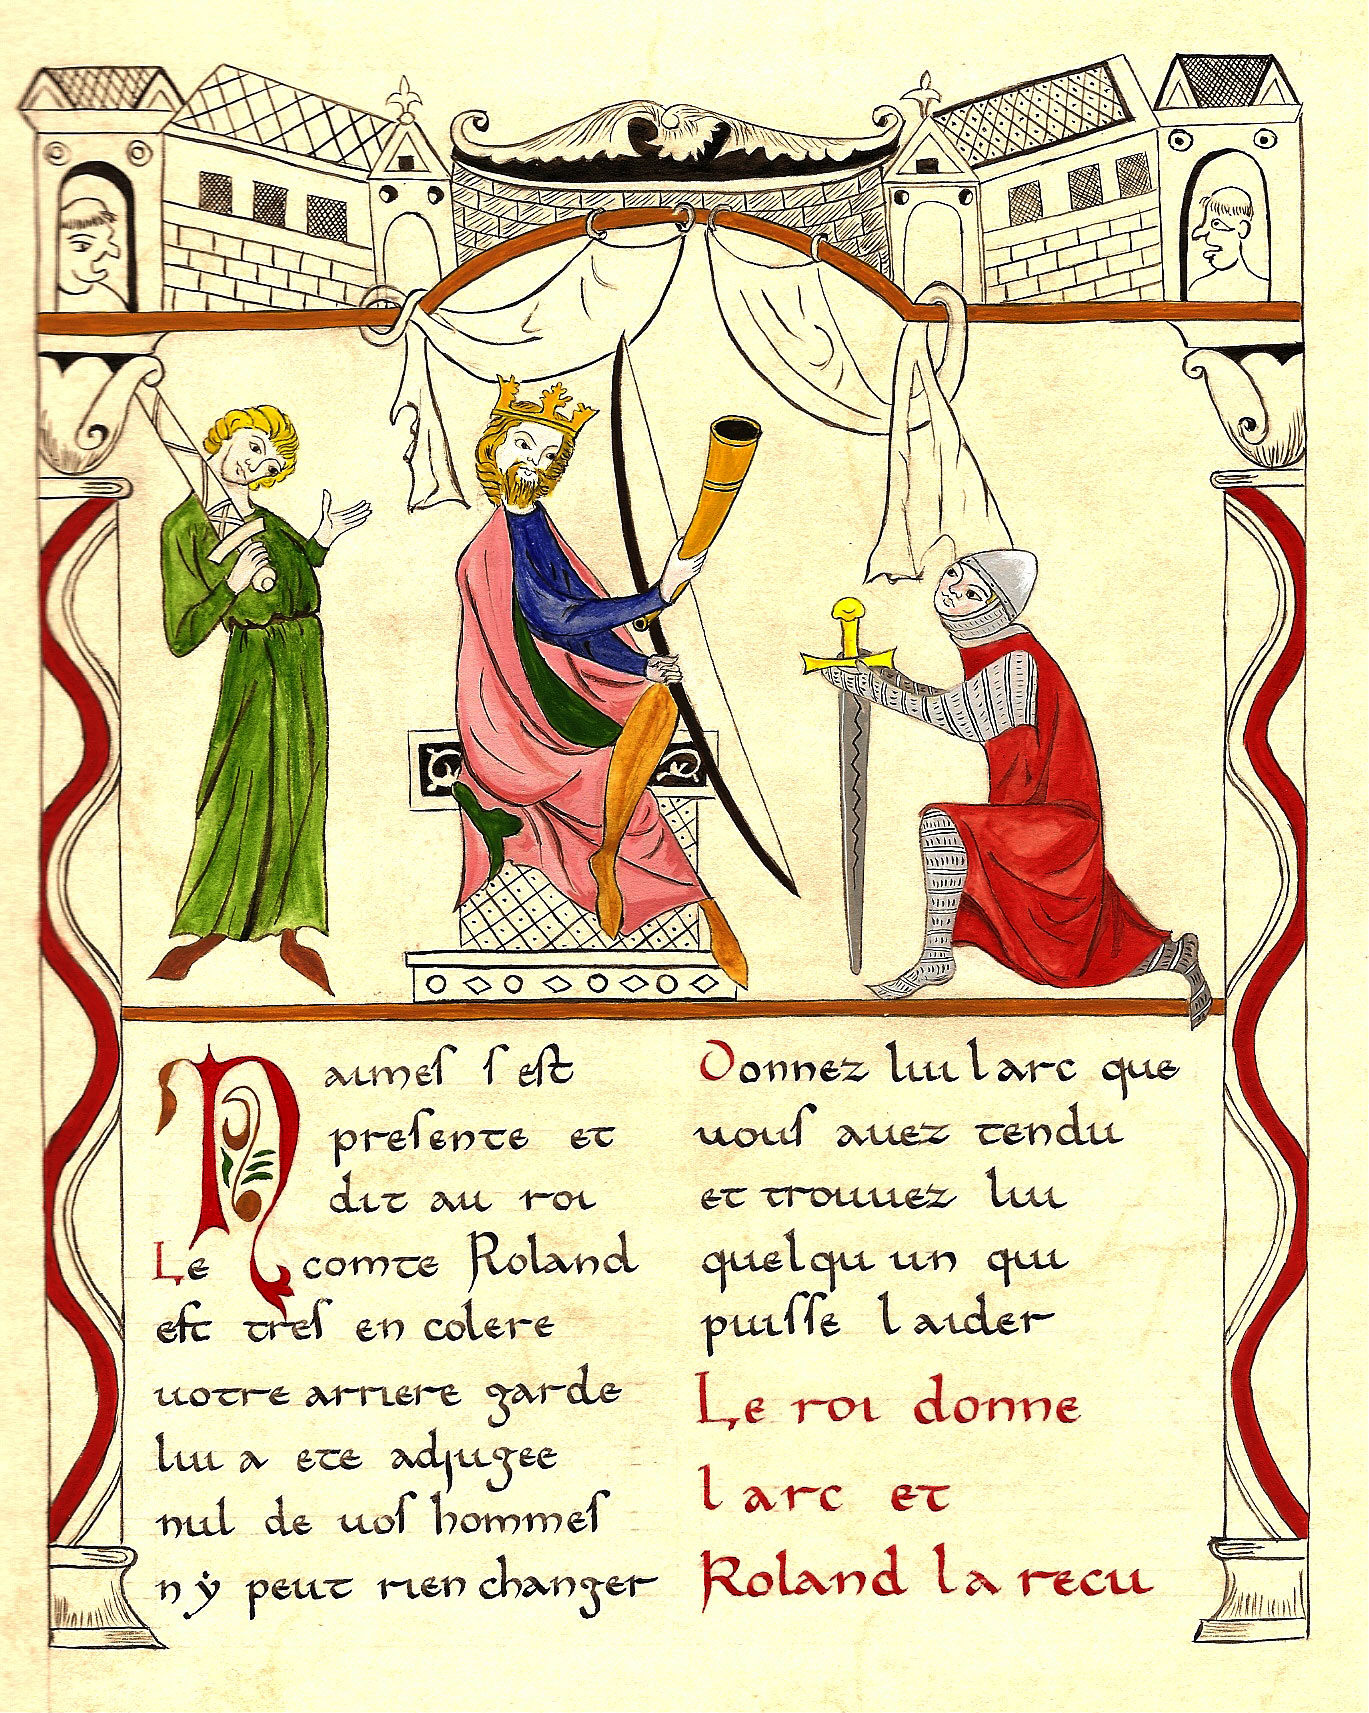 Naimeſ ſ eſt
preſente et
dit au roi
Le comte Roland
eſt treſ en colere
uotre arriere garde
lui a ete adjugee
nul de uoſ hommeſ
n ẏ peut rien changer
Donnez lui l arc que
uouſ auez tendu
et trouuez lui
quelqu un qui
puiſſe l aider
Le roi donne
l arc et
Roland l a recu